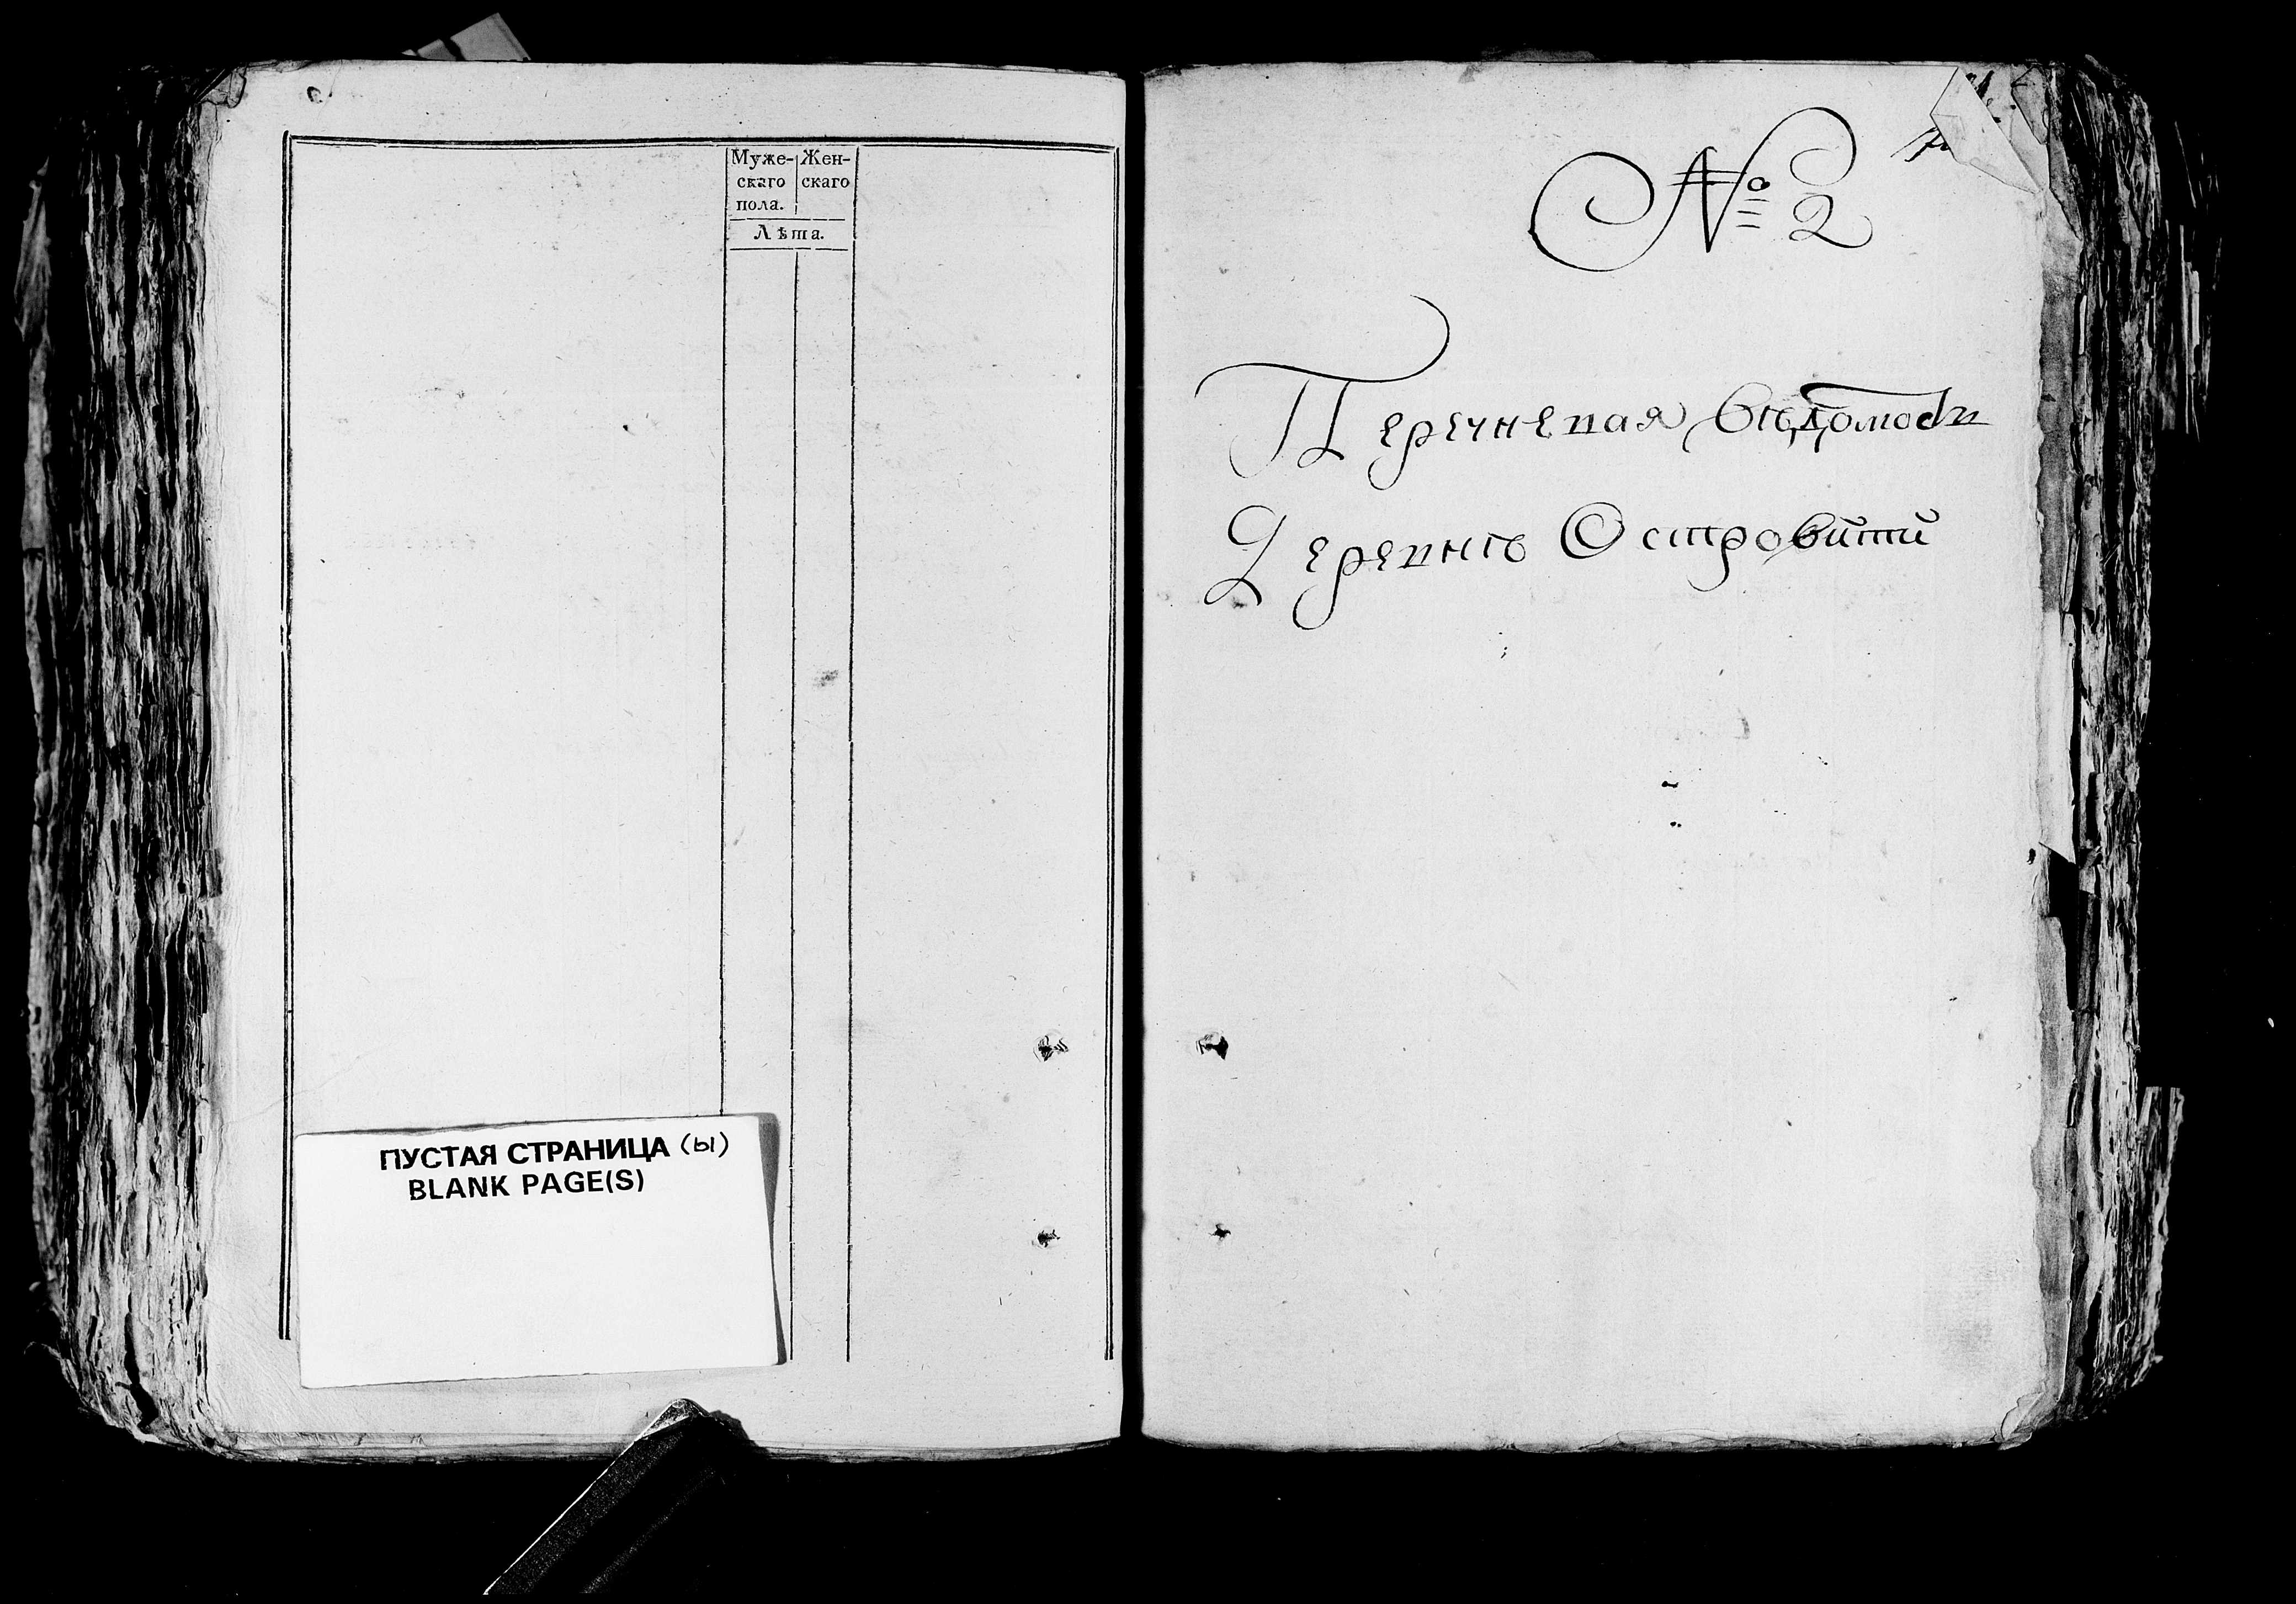 Муже- Жен-
скаго скаго
пола.
Лѣта.
ПУСТАЯ СТРАНИЦА (ы)
BLANK PAGE(S)
№ 2
Перечневая вѣдомость
Деревнѣ Островити